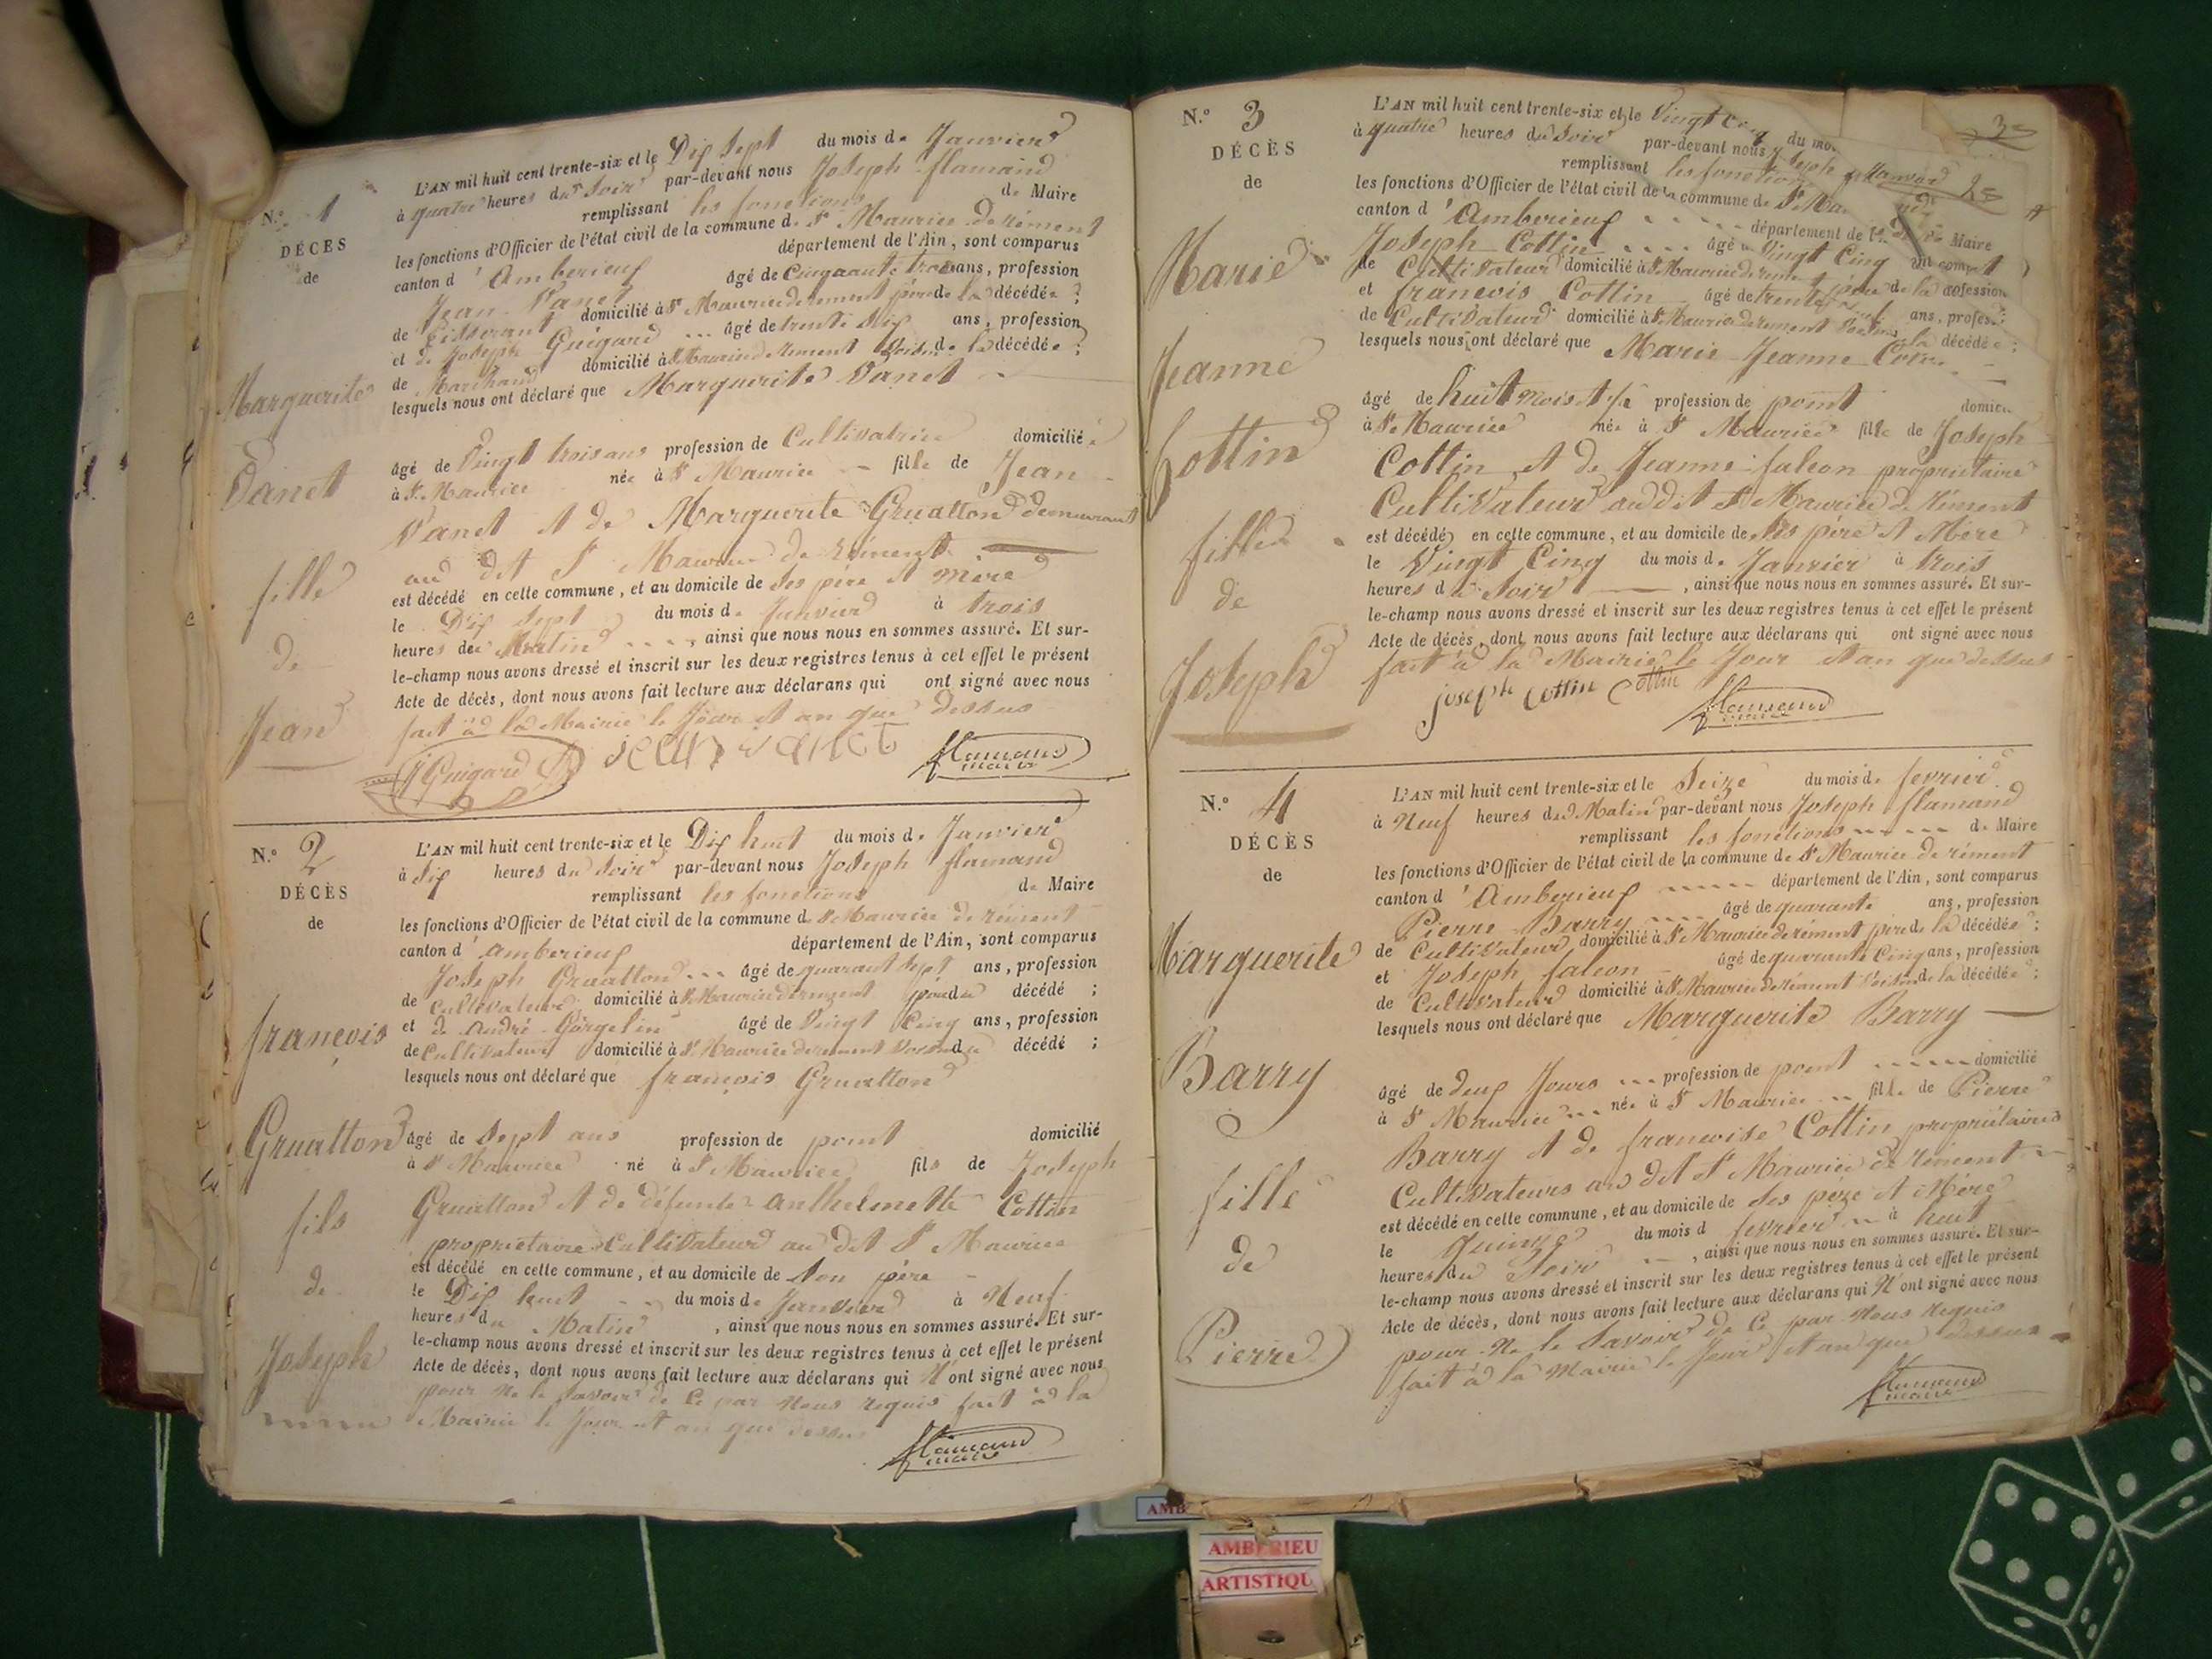 N.º 1
DÉCÈS
de
Marguerite
Vanet
fille
de
Jean
L'AN mil huit cent trente-six et le Dix Sept du mois de Janvier
à quatre heures du Soir par-devant nous Joseph flamand
remplissant les fonctions de Maire
les fonctions d'Officier de l'état civil de la commune de St Maurice de rément
canton d'Amberieux département de l'Ain, sont comparus
Jean Vanet âgé de Cinquante trois ans, profession
de Tisserant domicilié à St Maurice de rément père de la décédée ;
et de Joseph Guigard ... âgé de trente Six ans, profession
de Marchand domicilié à St Maurice de rément Voisin de la décédée ;
lesquels nous ont déclaré que Marguerite Vanet
âgé de Vingt trois ans profession de Cultivatrice domicilié
à St Maurice née à St Maurice fille de Jean
Vanet et de Marguerite Gruatton demeurant
au dit St Maurice de rément
est décédé en cette commune, et au domicile de Ses père et mère
le Dix Sept du mois de Janvier à trois
heures du Matin ainsi que nous nous en sommes assuré. Et sur-
le-champ nous avons dressé et inscrit sur les deux registres tenus à cet effet le présent
Acte de décès, dont nous avons fait lecture aux déclarans qui ont signé avec nous
fait à la Mairie le Jour et an que dessus
J Guigard Jean vanet flamand maire
N.º 2
DÉCÈS
de
françois
Gruatton
fils
de
Joseph
L'AN mil huit cent trente-six et le Dix huit du mois de Janvier
à Six heures du Soir par-devant nous Joseph flamand
remplissant les fonctions de Maire
les fonctions d'Officier de l'état civil de la commune de St Maurice de rément
canton d'amberieux département de l'Ain, sont comparus
Joseph Gruatton ... âgé de quarant Sept ans, profession
de Cultivateur domicilié à St Maurice de rément père du décédé ;
et de André Gorgelin âgé de Vingt Cinq ans, profession
de Cultivateur domicilié à St Maurice de rément Voisin du décédé ;
lesquels nous ont déclaré que françois Gruatton
âgé de Sept ans profession de point domicilié
à St Maurice né à St Maurice fils de Joseph
Gruatton et de défunte anthelmette Cottin
propriétaire Cultivateur au dit St Maurice
est décédé en cette commune, et au domicile de Son père
le Dix huit du mois de Janvier à Neuf
heures du Matin, ainsi que nous nous en sommes assuré. Et sur-
le-champ nous avons dressé et inscrit sur les deux registres tenus à cet effet le présent
Acte de décès, dont nous avons fait lecture aux déclarans qui N'ont signé avec nous
pour Ne le Savoir de Ce par Nous requis fait à la
Mairie le Jour et an que dessus
flamand maire
N.º 3
DÉCÈS
de
Marie
Jeanne
Cottin
fille
de
Joseph
3e
2e
L'AN mil huit cent trente-six et le Vingt Cinq du mo
à quatre heures du Soir par-devant nous Joseph flamand
remplissant les fonctions de Maire
les fonctions d'Officier de l'état civil de la commune de St Ma
canton d'Amberieux département de l'
Joseph Cottin .... âgé Vingt Cinq
de Cultivateur domicilié à St Maurice de rément père de la
et francois Cottin âgé de trente ans, profes
de Cultivateur domicilié à St Maurice de rément la décédée ;
lesquels nous ont déclaré que Marie Jeanne
âgé de huit mois profession de point domici
à St Maurice née à St Maurice fille de Joseph
Cottin et de Jeanne falcon propriétaire
Cultivateur audit St Maurice de rément
est décédé en cette commune, et au domicile de Ses père et Mère
le Vingt Cinq du mois de Janvier à trois
heures du Soir, ainsi que nous nous en sommes assuré. Et sur-
le-champ nous avons dressé et inscrit sur les deux registres tenus à cet effet le présent
Acte de décès, dont nous avons fait lecture aux déclarans qui ont signé avec nous
fait à la Mairie le Jour et an que dessus
joseph cottin Cottin flamand maire
N.º 4
DÉCÈS
de
Marguerite
Barry
fille
de
Pierre
L'AN mil huit cent trente-six et le Seize du mois de fevrier
à Neuf heures du Matin par-devant nous Joseph flamand
remplissant les fonctions de Maire
les fonctions d'Officier de l'état civil de la commune de St Maurice de rément
canton d'Amberieux département de l'Ain, sont comparus
Pierre Barry .... âgé de quarante ans, profession
de Cultivateur domicilié à St Maurice de rément père de la décédée ;
et Joseph falcon âgé de quarante Cinq ans, profession
de Cultivateur domicilié à St Maurice de rément Voisin de la décédée ;
lesquels nous ont déclaré que Marguerite Barry
âgé de deux Jours ... profession de point domicilié
à St Maurice ... née à St Maurice fille de Pierre
Barry et de francoise Cottin propriétaires
Cultivateurs au dit St Maurice de rément
est décédé en cette commune, et au domicile de Ses père et Mère
le quinze du mois d fevrier à huit
heures du Soir, ainsi que nous nous en sommes assuré. Et sur-
le-champ nous avons dressé et inscrit sur les deux registres tenus à cet effet le présent
Acte de décès, dont nous avons fait lecture aux déclarans qui N'ont signé avec nous
pour Ne le Savoir de Ce par Nous requis
fait à la Mairie le Jour et an que dessus
flamand maire
AMB
AMBERIEU
ARTISTIQU